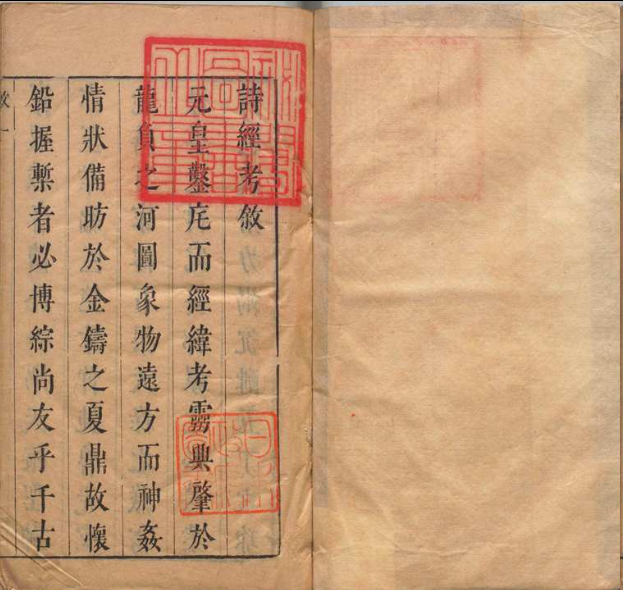 詩經考敘
元皇鑿庑而經緯考靈典肇於
龍負之河圖象物遠方而神姦
情狀備昉於金鑄之夏鼎故懷
鉛握槧者必博綜尚友乎千古
敘 一